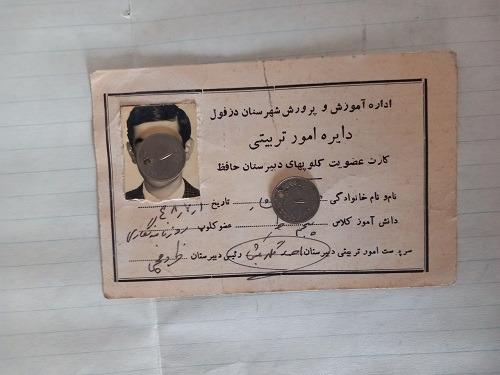 اداره آموزش و پرورش شهرستان دزفول
دایره امور تربیتی
کارت عضویت کلوپهای دبیرستان حافظ
نام و نام خانوادگی تاریخ
دانش آموز کلاس پنجم عضو کلوپ روزنامه نگاری
سرپرست امور تربیتی دبیرستان احمد رئیس دبیرستان